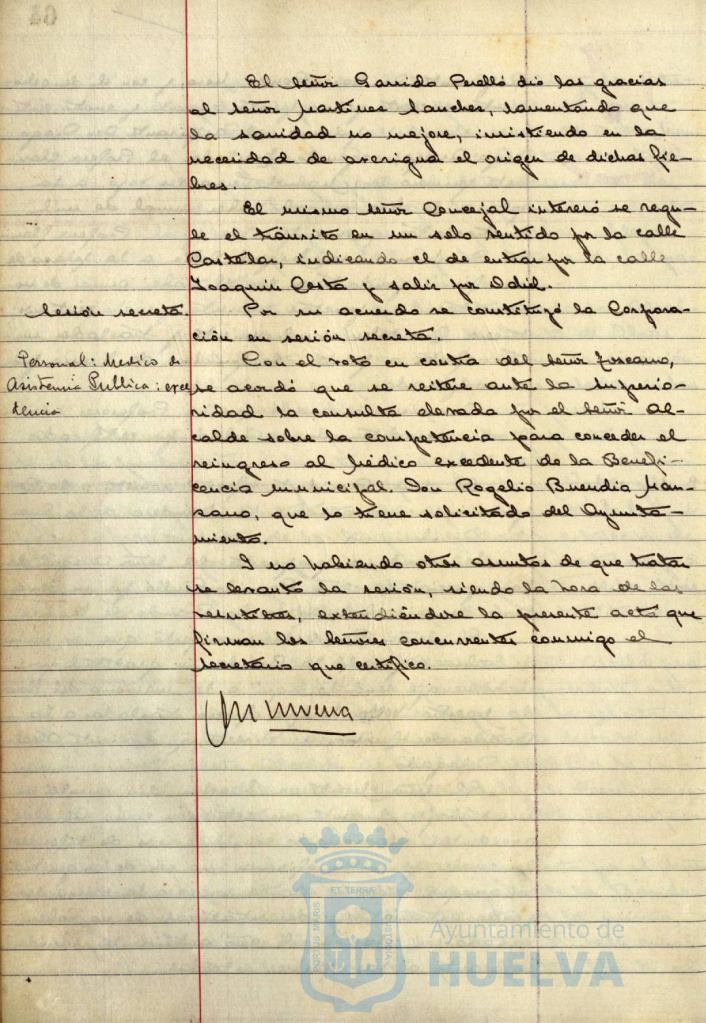 El señor Garrido Perelló dio las gracias
al señor Martinez Sanchez, lamentando que
la sanidad no mejore, insistiendo en la
necesidad de averigua el origen de dichas fie-
bres.
El mismo señor Concejal interesó se regu-
le el tránsito en un solo sentido por la calle
Castelar, indicando el de entrar por la calle
Joaquin Costa y salir por Odiel.
Sesión secreta.
Por su acuerdo se constituyó la Corpora-
ción en sesión secreta.
Personal: Medico de
Asistencia Publica: exce
dencia
Con el voto en contra del señor Toscano,
se acordó que se reitere ante la Superio-
ridad la consulta elevada por el señor Al-
calde sobre la competencia para conceder el
reingreso al Médico excedente de la Benefi-
cencia Municipal. Don Rogelio Buendia Man-
zano, que lo tiene solicitado del Ayunta-
miento.
I no habiendo otros asuntos de que tratar
se levantó la sesión, siendo la hora de las
extendiéndose la presente acta que
firman los Señores concurrentes conmigo el
Secretario que certifico.
PORTUS MARIS
ET TERRÆ
CUSTODIA
Ayuntamiento de
HUELVA